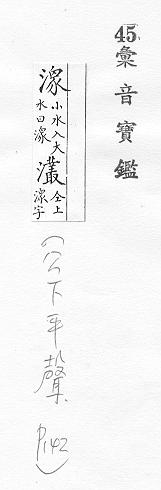 45. 彙音寶鑑
潨
小水入大
水曰潨
灇
仝上
潨字
(公下平聲 P.142)